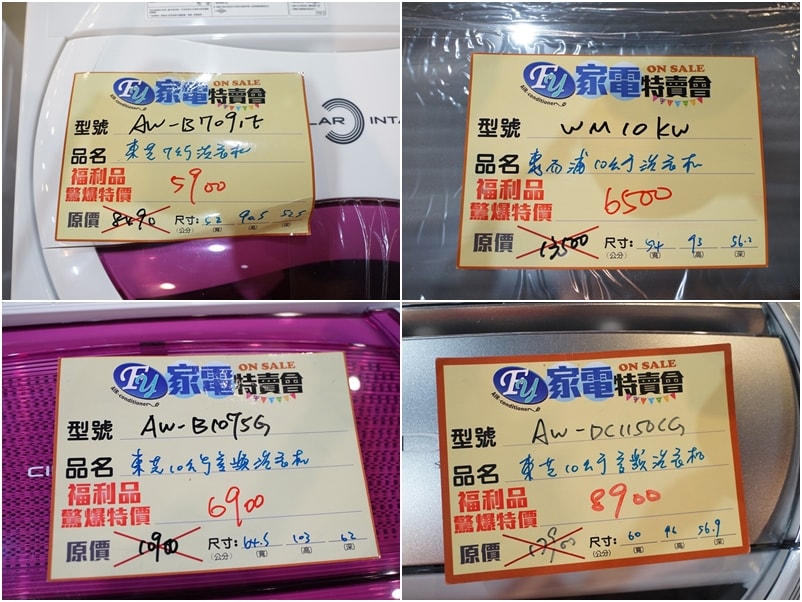 FU 家電特賣會 ON SALE
AIR-conditioner
型號 AW-B7091E
品名 東芝7公斤洗衣機
福利品
驚爆特價 5900
原價 8490 尺寸: 52 90.5 52.5
(公分) (寬) (高) (深)
LAR INTA
FU 家電特賣會 ON SALE
AIR-conditioner
型號 WM10KW
品名 惠而浦10公斤洗衣机
福利品
驚爆特價 6500
原價 13500 尺寸: 54 93 56.2
(公分) (寬) (高) (深)
FU 家電特賣會 ON SALE
AIR-conditioner
型號 AW-B1075G
品名 東芝10公斤變頻洗衣机
福利品
驚爆特價 6900
原價 10900 尺寸: 64.5 103 62
(公分) (寬) (高) (深)
FU 家電特賣會 ON SALE
AIR-conditioner
型號 AW-DC1150CG
品名 東芝10公斤變頻洗衣机
福利品
驚爆特價 8900
原價 尺寸: 60 96 56.9
(公分) (寬) (高) (深)